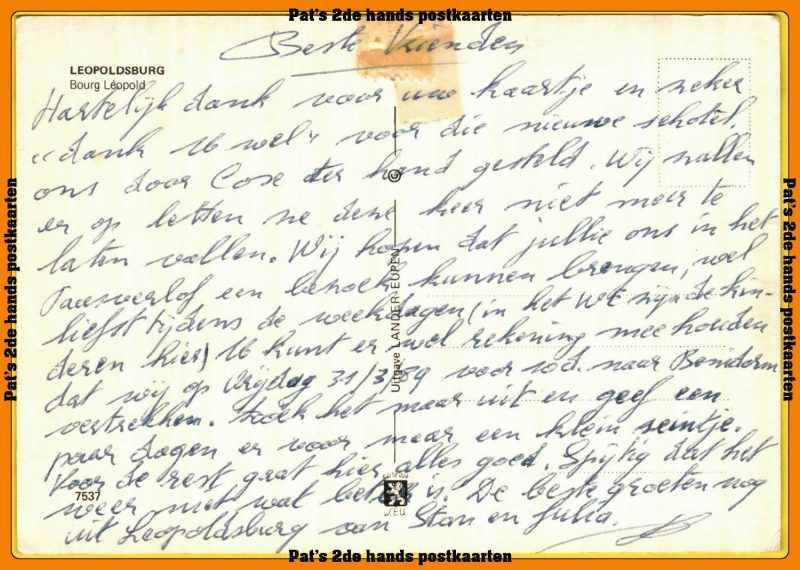 Pat's 2de hands postkaarten
Beste Vrienden
LEOPOLDSBURG
Bourg Léopold
Hartelijk dank voor uw kaartje en zeker
"dank U wel" voor die nieuwe schotel,
ons door Cose ter hand gesteld. Wij zullen
er op letten ze deze keer niet meer te
laten vallen. Wij hopen dat jullie ons in het
Paasverlof een bezoek kunnen brengen, wel
liefst tijdens de weekdagen (in het WE zijn de kin-
deren hier) U kunt er wel rekening mee houden
dat wij op Vrijdag 31/3/89 voor 10d. naar Benidorm
vertrekken. Zoek het maar uit en geef een
paar dagen er voor maar een klein seintje.
Voor de rest gaat hier alles goed. Spijtig dat het
weer niet wat beter is. De beste groeten nog
uit Leopoldsburg van Stan en Julia.
7537
Uitgave LANDER-EUPEN
©
Pat's 2de hands postkaarten
Pat's 2de hands postkaarten
Pat's 2de hands postkaarten